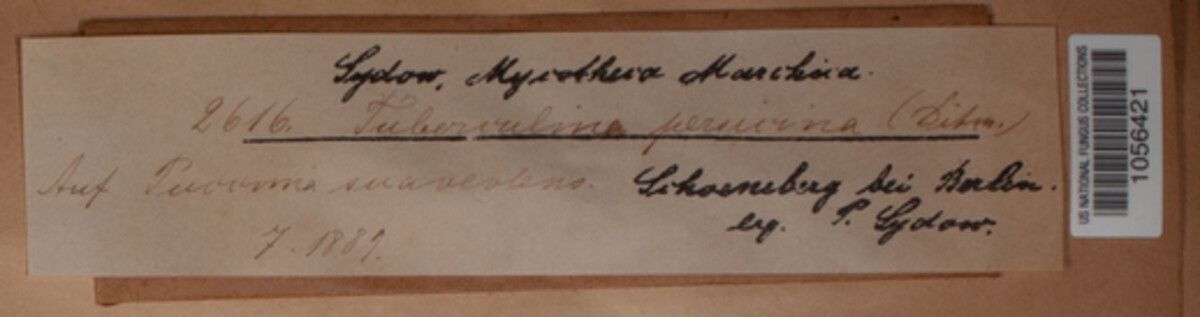 Sydow, Mycotheca Marchica.
2616. Tuberculina persicina (Ditm.)
Auf Puccinia suaveolens. Schoeneberg bei Berlin.
7. 1889. leg. P. Sydow.
US NATIONAL FUNGUS COLLECTIONS
1056421